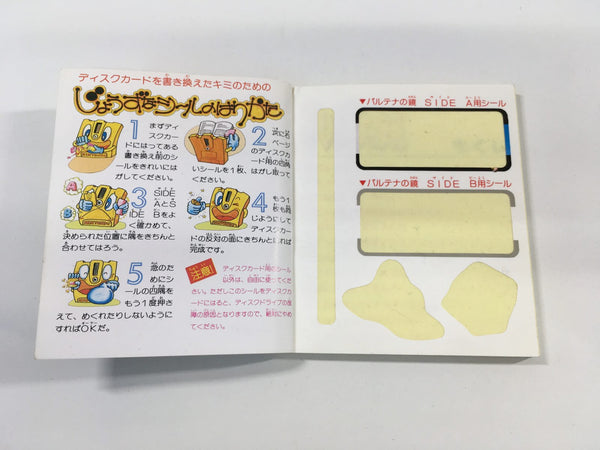 ディスクカードを書き換えたキミのための
じょうずなシールのはりかた
1 まずディ
スクカー
ドにはってある
書き換え前のシ
ールをきれいには
がしてください。
2 次に右
ページ
のディスク
カード用の四角
いシールを1枚、
はがし取って
3 SIDE
AとS
IDE Bをよ
く確かめて、
決められた位置に隅をきちんと
合わせてはろう。
4 もう1
枚も同
じようにして
ディスクカー
ドの反対の面にきちんとはれば
完成です。
5 念のた
めにシ
ールの四隅を
もう1度押さ
えて、めくれたりしないように
すればOKだ。
注意!
ディスクカード用のシール
以外は、自由に使ってくだ
さい。ただしこのシールをディスクカ
ードにはると、ディスクドライブの故
障の原因となりますので、絶対にやめ
てください。
▼パルテナの鏡 SIDE A用シール
▼パルテナの鏡 SIDE B用シール